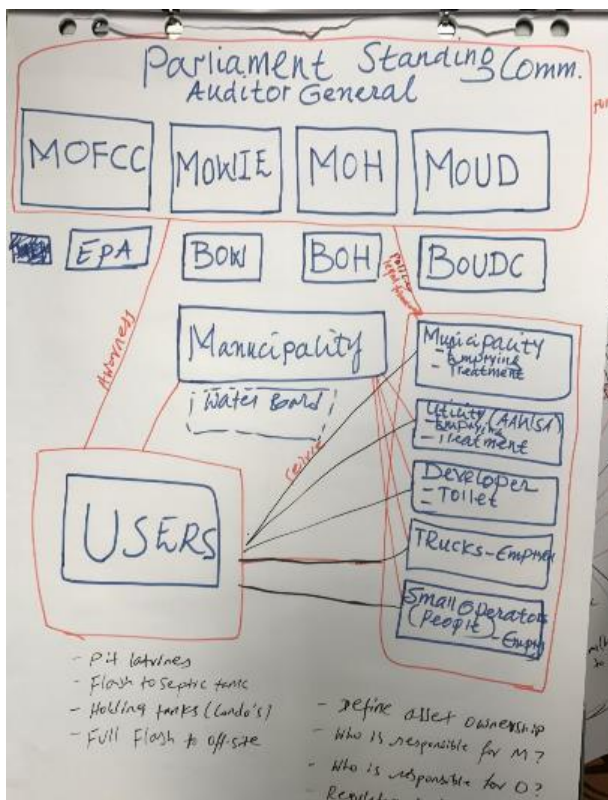 Parliament Standing Comm.
Auditor General
MOFCC
MOWIE
MOH
MOUD
EPA
BOW
BOH
BOUDC
Awarness
Manucipality
Water Board
Service
Municipality
- Emptying
- Treatment
Utility (AAWSA)
- Emptying
- Treatment
Developer
- Toilet
USERS
TRUCKS - Emptier
Small Operators
(People) - Empty
- Pit latrines
- Flash to septic tank
- Holding tanks (Condo's)
- Full Flash to off-site
- Define asset ownership
- Who is responsible for M?
- Who is responsible for O?